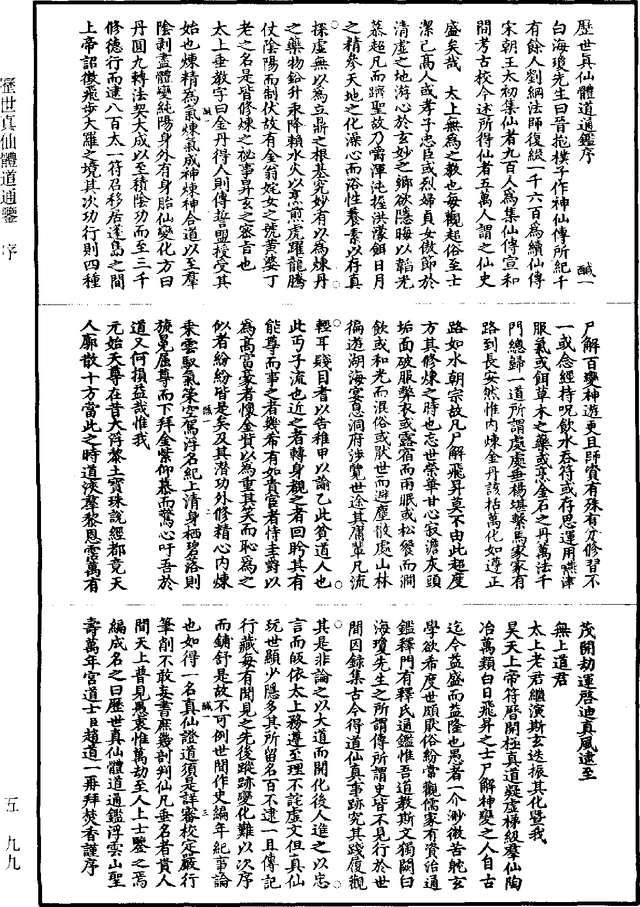 歷世真仙體道通鑑序　醎一
白海瓊先生曰晉抱樸子作神仙傳所紀千
有餘人劉綱法師復綴一千六百為續仙傳
宋朝王太初集仙者九百人為集仙傳宣和
間考古校今述所得仙者五萬人謂之仙史
盛矣哉　太上無為之教也每觀起俗至士
潔己高人或孝子忠臣或烈婦貞女儆節於
清虛之地游心於玄妙之鄉欲隱晦以韜光
慕超凡而躋聖故乃嚼渾沌握洪濛餌日月
之精參天地之化澡心而浴性養素以存真
採虛無以為立鼎之根基究妙有以為煉丹
之藥物鉛升汞降賴水火以烹煎虎躍龍騰
仗陰陽而制伏故有金翁姹女之號黃婆丁
老之名是皆修煉之秘事昇玄之密言也
太上垂教字曰金丹得人則傳誓盟授受其
始也煉精為氣煉氣成神煉神合道以至羣
陰剥盡體變純陽身外有身胎仙變化方曰
丹圓九轉法契大成以至積陰功而至三千
修德行而逮八百太一符召移居蓬島之間
上帝詔徵飛步大羅之境其次功行則四種
尸解百變神遊更且師資有殊有分修習不
一或念經持呪飲水吞符或存思運用嚥津
服氣或餌草木之藥或烹金石之丹萬法千
門總歸一道所謂處處垂楊堪繫馬家家有
路到長安然惟內煉金丹該括萬化如遵正
路如水朝宗故凡尸解飛昇莫不由此超度
方其修煉之時也忘世榮華甘心寂澹灰頭
垢面破服弊衣或露宿而雨眠或松餐而澗
飲或和光而混俗或厭世而避塵散處山林
徧遊湖海宴息洞府涉覽世途其庸輩凡流
輕耳賤目者以告稚甲以諭乙此貧道人也
此丐子流也近之者轉身觀之者回盻其有
能尊而事之者幾希有如貴官者恃圭爵以
為高富豪者懷金貲以為重其笑而恥為之
似者紛紛皆是矣及其潜功外修精心內煉
乘雲馭氣策空駕浮名紀上清身栖碧落則
旒冕屈尊而下拜金紫仰慕而驚心吁吾於
道又何損益哉惟我
元始天尊在昔大浮黎土寶珠說經都竟天
人廓散十方當此之時道浹羣黎恩霑萬有
茂開劫運啓迪真風逮至
無上道君
太上老君繼演斯玄迭振其化暨我
昊天上帝符曆開極真道疑虛梯級羣仙陶
冶萬類白日飛昇之士尸解神變之人自古
迄今益盛而益隆也愚者一介渺微苦躭玄
學欲希度世頗厭俗紛嘗觀儒家有資治通
鑑釋門有釋氏通鑑惟吾道教斯文獨闕白
海瓊先生之所謂傳所謂史皆不見行於世
間因錄集古今得道仙真事跡究其踐履觀
其是非論之以大道而開化後人進之以忠
言而皈依太上務遵至理不託虛文但真仙
玩世顯少隱多其所留名百不逮一且傳記
行藏每有聞見之先後蹤跡變化難以次序
而鋪舒是故不可倒世間作史編年紀事論
也如得一名真仙證道須是詳審校定嚴行
筆削不敢妄書庶幾剖判仙凡垂名者貫人
間天上普見愚衷惟萬劫至人上士鑒之焉
編成名之曰歷世真仙體道通鑑浮雲山聖
壽萬年宮道士臣趙道一再拜焚香謹序
歷世真仙體道通鑒　序
五　九九